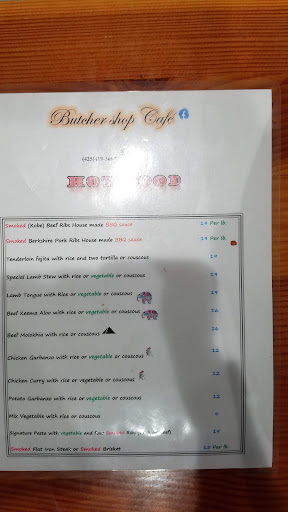 Butcher shop Cafe
(425)
HOT FOOD
Smoked (Kobe) Beef Ribs House made BBQ sauce 19 Per lb
Smoked Berkshire Pork Ribs House made BBQ sauce 19 Per lb
Tenderloin fajita with rice and two tortilla or couscous 19
Special Lamb Stew with Rice or vegetable or couscous
Lamb Tongue with Rice or vegetable or couscous
Beef Keema Aloo with rice or couscous 16
Beef Molokhia with rice or couscous 16
Chicken Garbanzo with rice or vegetable or couscous 12
Chicken Curry with rice or vegetable or couscous 12
Potato Garbanzo with rice or vegetable or couscous 12
Mix Vegetable with rice or couscous 9
Signature Pasta with vegetable and
Smoked Flat Iron Steak or Smoked Brisket Per lb